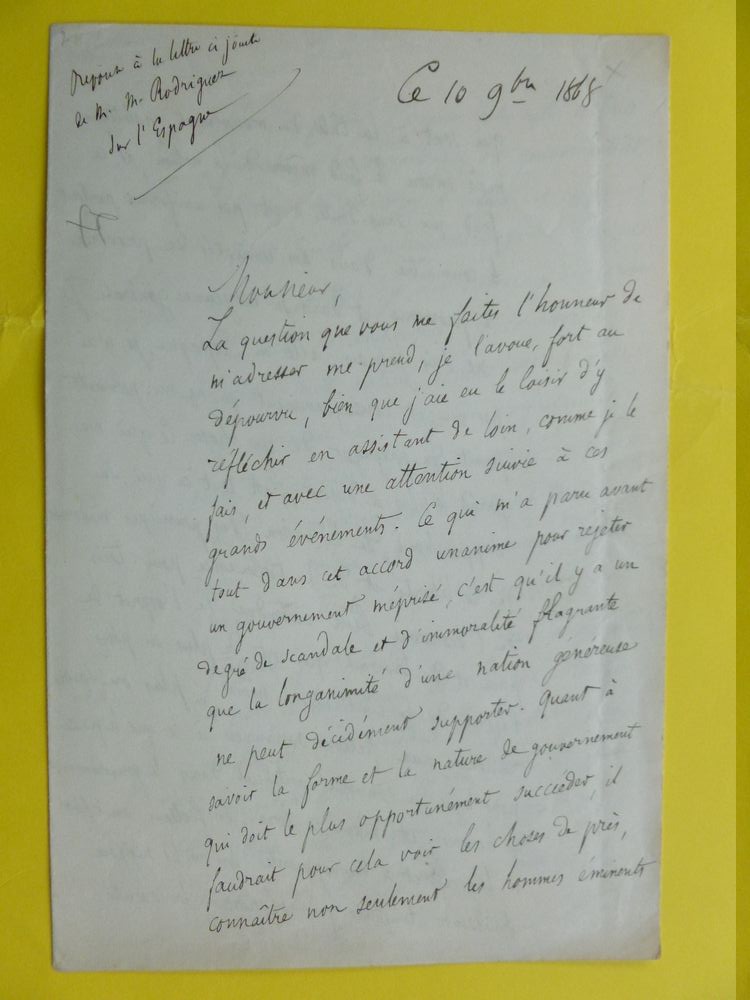 Réponse à la lettre ci jointe
de M. M. Rodriguez
sur l'Espagne
Ce 10 9bre 1868
Monsieur,
La question que vous me faites l'honneur de
m'adresser me prend, je l'avoue, fort au
dépourvu, bien que j'aie eu le loisir d'y
réfléchir en assistant de loin, comme je le
fais, et avec une attention suivie à ces
grands événements. Ce qui m'a paru avant
tout dans cet accord unanime pour rejeter
un gouvernement méprisé, c'est qu'il y a un
degré de scandale et d'immoralité flagrante
que la longanimité d'une nation généreuse
ne peut décidément supporter. Quant à
savoir la forme et la nature de gouvernement
qui doit le plus opportunément succéder, il
faudrait pour cela voir les choses de près,
connaître non seulement les hommes éminents